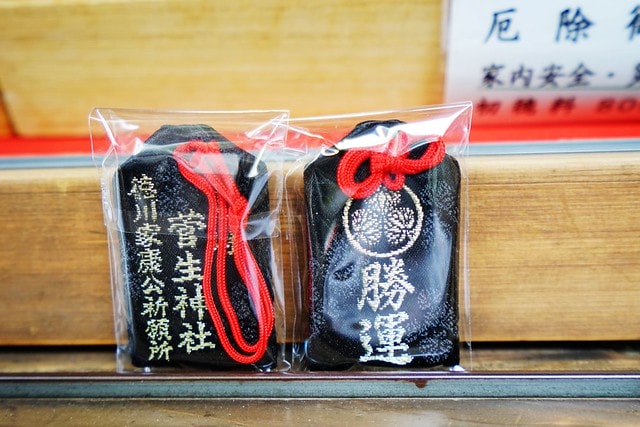 厄除
家内安全・
初穂料
徳川家康公祈願所
菅生神社
勝運